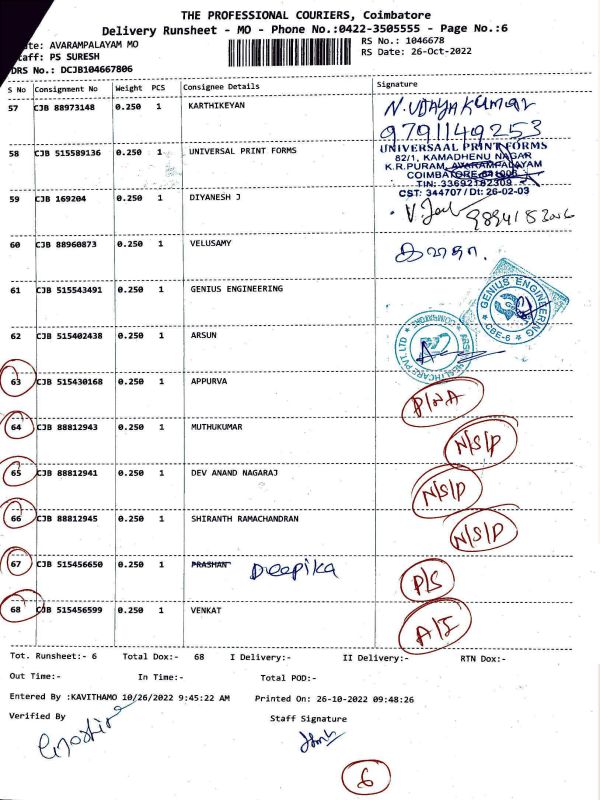 THE PROFESSIONAL COURIERS, Coimbatore
Delivery Runsheet - MO - Phone No.:0422-3505555 - Page No.:6
AVARAMPALAYAM MO
RS No.: 1046678
PS SURESH
RS Date: 26-Oct-2022
DRS No.: DCJB104667806
S No Consignment No Weight PCS Consignee Details Signature
57 CJB 88973148 0.250 1 KARTHIKEYAN N.VIJAYAKUMAR
9791149253
58 CJB 515589136 0.250 1 UNIVERSAL PRINT FORMS UNIVERSAAL PRINT FORMS
82/1, KAMADHENU NAGAR
K.R.PURAM, AVARAMPALAYAM
COIMBATORE-641006
TIN: 33692182309
CST: 344707/Dt: 26-02-03
59 CJB 169204 0.250 1 DIYANESH J
60 CJB 88960873 0.250 1 VELUSAMY
61 CJB 515543491 0.250 1 GENIUS ENGINEERING GENIUS ENGINEERING
CBE-6
62 CJB 515402438 0.250 1 ARSUN
63 CJB 515430168 0.250 1 APPURVA P/NA
64 CJB 88812943 0.250 1 MUTHUKUMAR N/S/P
65 CJB 88812941 0.250 1 DEV ANAND NAGARAJ N/S/P
66 CJB 88812945 0.250 1 SHIRANTH RAMACHANDRAN N/S/P
67 CJB 515456650 0.250 1 PRASHAN Deepika P/S
68 CJB 515456599 0.250 1 VENKAT A/I
Tot. Runsheet:- 6 Total Dox:- 68 I Delivery:- II Delivery:- RTN Dox:-
Out Time:- In Time:- Total POD:-
Entered By :KAVITHAMO 10/26/2022 9:45:22 AM Printed On: 26-10-2022 09:48:26
Verified By Staff Signature
6